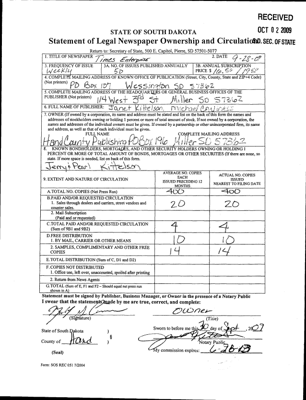 RECEIVED
OCT 02 2009
STATE OF SOUTH DAKOTA
Statement of Legal Newspaper Ownership and Circulation S.D. SEC. OF STATE
Return to: Secretary of State, 500 E. Capitol, Pierre, SD 57501-5077
1. TITLE OF NEWSPAPER Times Enterprise 2. DATE
3. FREQUENCY OF ISSUE 3A. NO. OF ISSUES PUBLISHED ANNUALLY 3B. ANNUAL SUBSCRIPTION
Weekly 50 PRICE $
4. COMPLETE MAILING ADDRESS OF KNOWN OFFICE OF PUBLICATION (Street, City, County, State and ZIP+4 Code)
(Not printers) PO Box 107 Wessington SD 57382
5. COMPLETE MAILING ADDRESS OF THE HEADQUARTERS OR GENERAL BUSINESS OFFICES OF THE
PUBLISHER (Not printer) 114 West 3rd St Miller SD 57362
6. FULL NAME OF PUBLISHER:
7. OWNER (If owned by a corporation, its name and address must be stated and list on the back of this form the names and
addresses of stockholders owning or holding 1 percent or more of total amount of stock. If not owned by a corporation, the
names and addresses of the individual owners must be given. If owned by a partnership or other unincorporated firm, its name
and address, as well as that of each individual must be given.
FULL NAME COMPLETE MAILING ADDRESS
Hand County Publishing PO Box 196 Miller SD 57362
8. KNOWN BONDHOLDERS, MORTGAGEES, AND OTHER SECURITY HOLDERS OWNING OR HOLDING 1
PERCENT OR MORE OF TOTAL AMOUNT OF BONDS, MORTGAGES OR OTHER SECURITIES (If there are none, so
state. If more space is needed, list on back of this form.
Jerry + Pearl Kittelson
9. EXTENT AND NATURE OF CIRCULATION
AVERAGE NO. COPIES EACH ISSUE PRECEDING 12 MONTHS
ACTUAL NO. COPIES ISSUED NEAREST TO FILING DATE
A. TOTAL NO. COPIES (Net Press Run) 400 400
B. PAID AND/OR REQUESTED CIRCULATION
1. Sales through dealers and carriers, street vendors and counter sales. 20 20
2. Mail Subscription (Paid and or requested)
C. TOTAL PAID AND/OR REQUESTED CIRCULATION (Sum of 9B1 and 9B2) 4 4
D. FREE DISTRIBUTION
1. BY MAIL, CARRIER OR OTHER MEANS 10 10
2. SAMPLES, COMPLIMENTARY AND OTHER FREE COPIES 14 14
E. TOTAL DISTRIBUTION (Sum of C, D1 and D2)
F. COPIES NOT DISTRIBUTED
1. Office use, left over, unaccounted, spoiled after printing
2. Return from News Agents
G. TOTAL (Sum of E, F1 and F2 - Should equal net press run shown in A)
Statement must be signed by Publisher, Business Manager, or Owner in the presence of a Notary Public
I swear that the statements made by me are true, correct, and complete:
Owner
(Signature) (Title)
State of South Dakota
Sworn to before me this 30 day of Sept
County of Hand
Notary Public
(Seal) My commission expires:
Form: SOS REC 051 7/2004